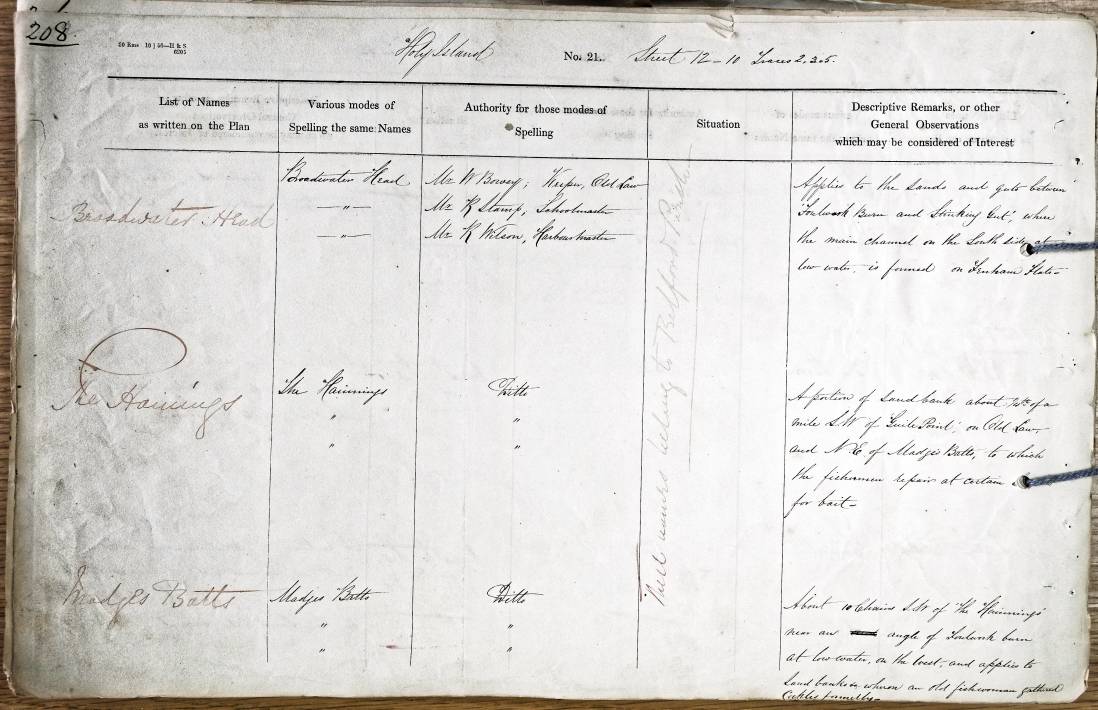 208.
20 Rms 10 | 56—H & S
6205
Holy Island
No. 21.
Sheet 12 - 10 Traces 2, 3 & 5.
List of Names
as written on the Plan
Various modes of
Spelling the same Names
Authority for those modes of
Spelling
Situation
Descriptive Remarks, or other
General Observations
which may be considered of Interest
Broadwater Head
Broadwater Head
— " —
— " —
Mr W Bowey, Keeper, Old Law
Mr R Stamp, Schoolmaster
Mr R Wilson, Harbourmaster
Applies to the Sands and guts between
'Foulwork Burn and Stinking Gut', where
the main channel on the South side at
low water, is formed on Fenham Flats-
The Hainings
The Hainings
"
"
Ditto
"
"
A portion of Sandbank about of a
mile S.W of 'Guile Point', on Old Law,
and N.E. of Madges Batts, to which
the fishermen repair at certain
for bait-
Madges Batts
Madges Batts
"
"
Ditto
"
"
About 10 Chains S.W of 'The Hainings'
near an angle of Foulwork burn
at low water, on the West, and applies to
Sandbanks whereon an old fishwoman gathered
Cockles formerly-
These names belong to Belford Parish